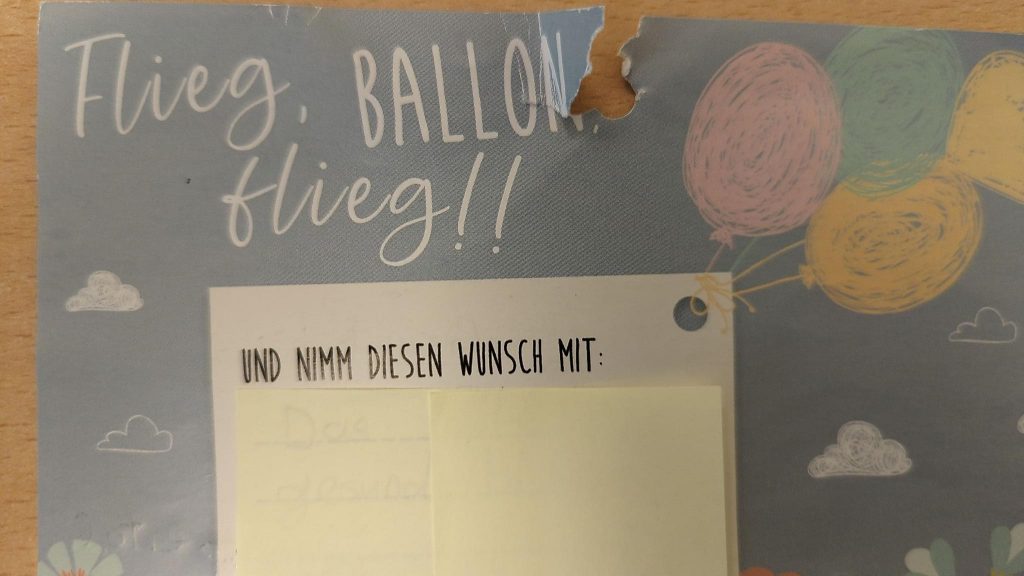 Flieg, BALLON,
flieg!!
UND NIMM DIESEN WUNSCH MIT: